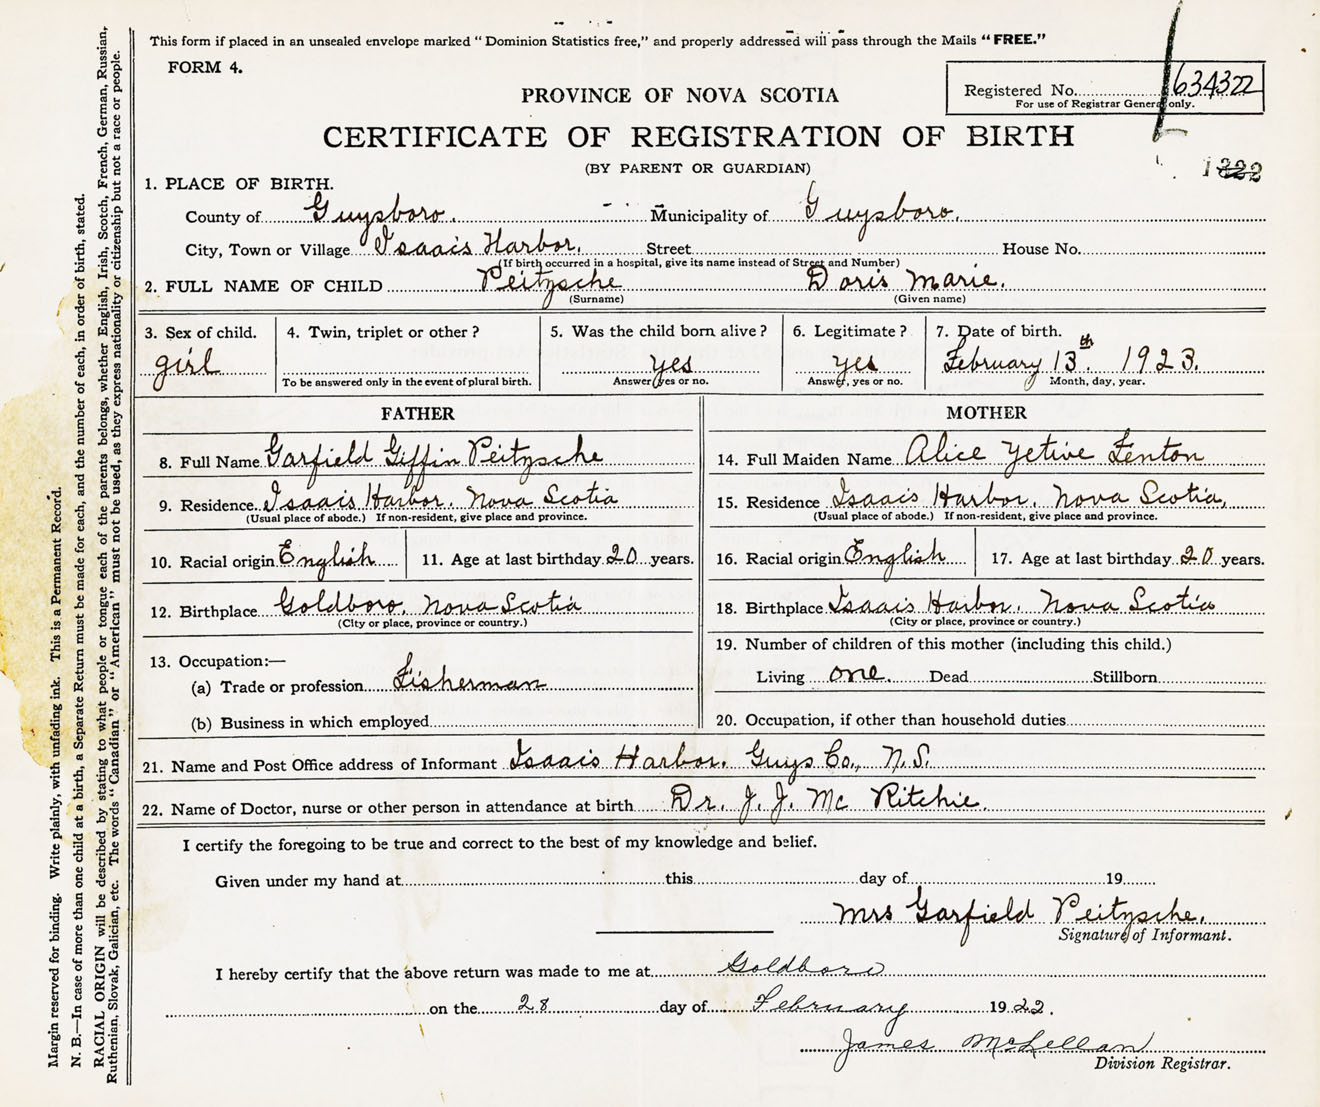 This form if placed in an unsealed envelope marked "Dominion Statistics free," and properly addressed will pass through the Mails "FREE."
FORM 4.
Registered No. 634322
For use of Registrar General only.
PROVINCE OF NOVA SCOTIA
CERTIFICATE OF REGISTRATION OF BIRTH
(BY PARENT OR GUARDIAN)
1. PLACE OF BIRTH.
County of Guysboro. Municipality of Guysboro.
City, Town or Village Isaacs Harbor. Street House No.
(If birth occurred in a hospital, give its name instead of Street and Number)
2. FULL NAME OF CHILD Peitzsche Doris Marie.
(Surname) (Given name)
3. Sex of child. 4. Twin, triplet or other? 5. Was the child born alive? 6. Legitimate? 7. Date of birth.
girl yes yes February 13th 1923.
To be answered only in the event of plural birth. Answer yes or no. Answer, yes or no. Month, day, year.
FATHER MOTHER
8. Full Name Garfield Giffin Peitzsche 14. Full Maiden Name Alice Yetive Fenton
9. Residence Isaacs Harbor, Nova Scotia 15. Residence Isaacs Harbor, Nova Scotia,
(Usual place of abode.) If non-resident, give place and province. (Usual place of abode.) If non-resident, give place and province.
10. Racial origin English 11. Age at last birthday 20 years. 16. Racial origin English 17. Age at last birthday 20 years.
12. Birthplace Goldboro, Nova Scotia 18. Birthplace Isaacs Harbor, Nova Scotia
(City or place, province or country.) (City or place, province or country.)
13. Occupation:— 19. Number of children of this mother (including this child.)
(a) Trade or profession Fisherman Living one. Dead Stillborn
(b) Business in which employed 20. Occupation, if other than household duties
21. Name and Post Office address of Informant Isaacs Harbor, Guys Co., N.S.
22. Name of Doctor, nurse or other person in attendance at birth Dr. J. J. Mc Ritchie.
I certify the foregoing to be true and correct to the best of my knowledge and belief.
Given under my hand at this day of 19
Mrs Garfield Peitzsche.
Signature of Informant.
I hereby certify that the above return was made to me at Goldboro
on the 28 day of February 1922.
James McLellan
Division Registrar.
Margin reserved for binding. Write plainly, with unfading ink. This is a Permanent Record.
N. B.—In case of more than one child at a birth, a Separate Return must be made for each, and the number of each, in order of birth, stated.
RACIAL ORIGIN will be described by stating to what people or tongue each of the parents belongs, whether English, Irish, Scotch, French, German, Russian,
Ruthenian, Slovak, Galician, etc. The words "Canadian" or "American" must not be used, as they express nationality or citizenship but not a race or people.